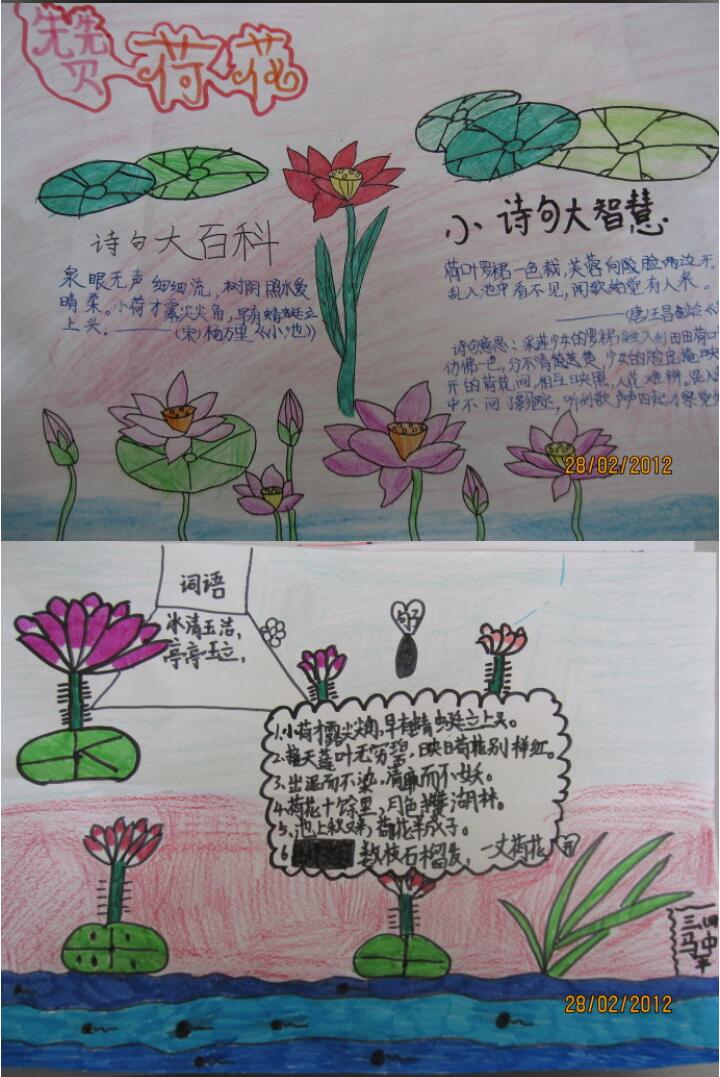 赞荷花
诗句大百科
泉眼无声细细流，树阴照水爱
晴柔。小荷才露尖尖角，早有蜻蜓立
上头。——(宋)杨万里《小池》
小诗句大智慧
荷叶罗裙一色裁，芙蓉向脸两边开
乱入池中看不见，闻歌始觉有人来。
——(唐)王昌龄
诗句意思：采莲少女的罗裙融入到田田荷叶
仿佛一色，分不清
少女的脸庞掩映
开的荷花间，相互映照，人花难辨。混入莲
中不问了踪影，听到歌声四起才察觉
28/02/2012
词语
冰清玉洁，
亭亭玉立，
句子
1.小荷才露尖尖角，早有蜻蜓立上头。
2.接天莲叶无穷碧，映日荷花别样红。
3.出泥而不染，清廉而不妖。
4.荷花十馀里，月色攀湖林。
5.池上秋又来，荷花半成子。
6 数枝石榴发，一丈荷花开
三.四
马中平
28/02/2012